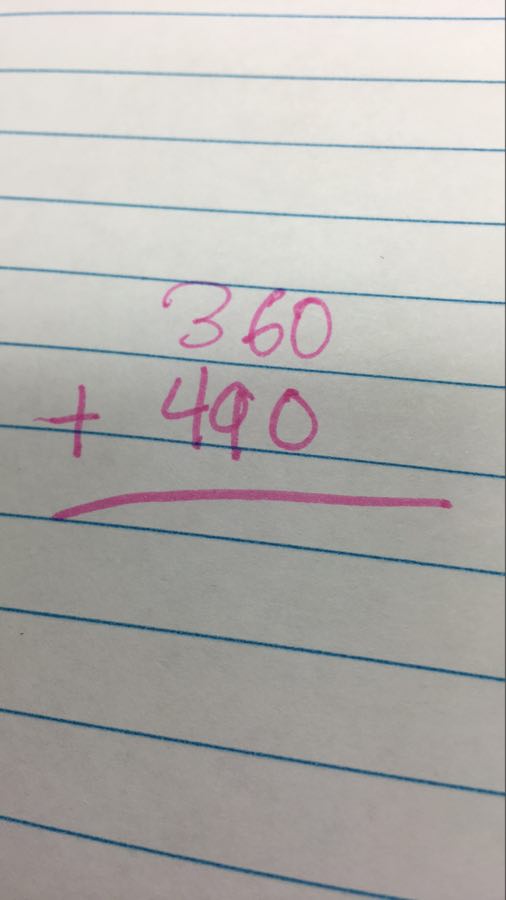 360
+ 490